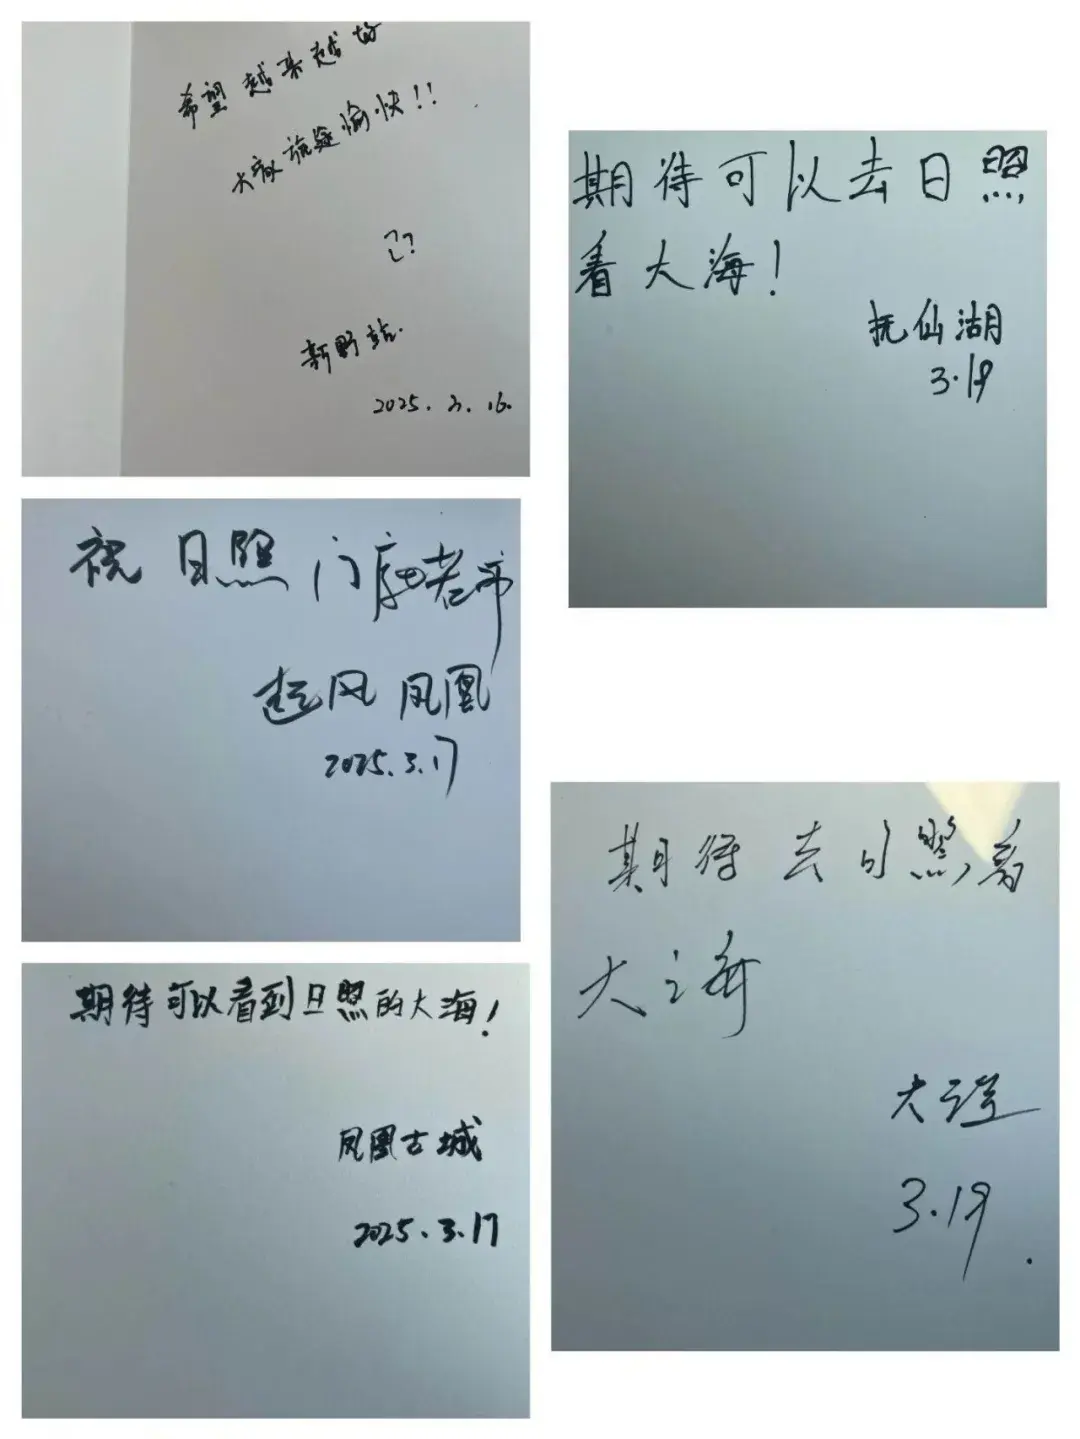 希望越来越好
大家旅途愉快!!
新野站.
2025.3.16.
祝日照门店老师
起风凤凰
2025.3.17
期待可以看到日照的大海!
凤凰古城
2025.3.17
期待可以去日照
看大海!
抚仙湖
3.19
期待去日照看
大海
大连
3.19